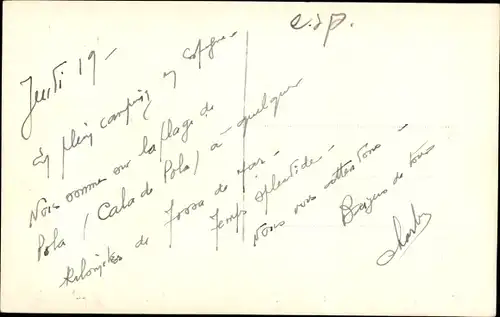 esp.
Jeudi 19 -
En plein camping en Espagne -
Nous sommes sur la plage de
Pola (Cala de Pola) à quelques
kilomètres de Tossa de Mar -
Temps splendide -
Nous vous attendons -
Baisers de tous
Charles